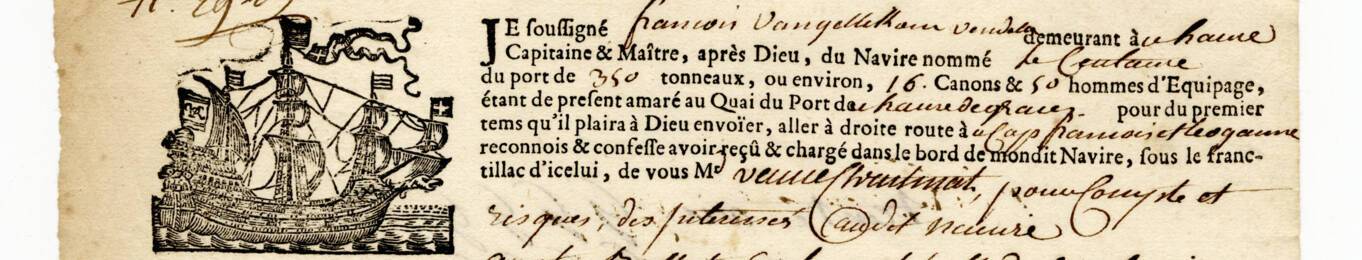 JE soussigné francois demeurant au havre
Capitaine & Maître, après Dieu, du Navire nommé le Centaure
du port de 350 tonneaux, ou environ, 16. Canons & 50 hommes d'Equipage,
étant de present amaré au Quai du Port du havre de grace pour du premier
tems qu'il plaira à Dieu envoïer, aller à droite route à au Cap francois et leoganne
reconnois & confesse avoir reçû & chargé dans le bord de mondit Navire, sous le franc-
tillac d'icelui, de vous Mr veuve pour Compte et
risques, des interessés audit navire